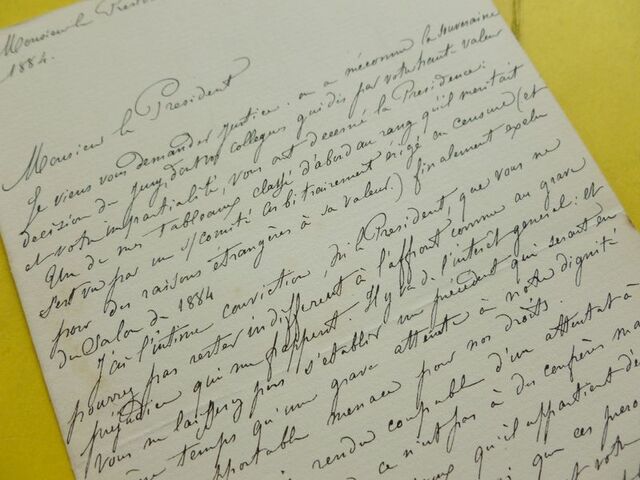 Monsieur le
1884.
Monsieur le Président
Je viens vous demander justice. on a méconnu la souveraine
décision du Jury, dont vos collègues guidés par votre haute valeur
et votre impartialité, vous ont décerné la Présidence:
Un de mes Tableaux classé d'abord au rang qu'il méritait
s'est vu par un s/Comité (arbitrairement érigé en censure (et
pour des raisons étrangères à sa valeur) finalement exclu
du Salon de 1884
J'ai l'intime conviction, M. le Président, que vous ne
pourrez pas rester indifférent à l'affront comme au grave
préjudice qui me frappent. Il y va de l'intérêt général: et
vous ne laisserez pas s'établir un précédent qui serait en
temps qu'une grave atteinte à notre dignité
menace pour nos droits.
rendu coupable d'un attentat à
ce n'est pas à des confrères mais
qu'il appartient de
que ces